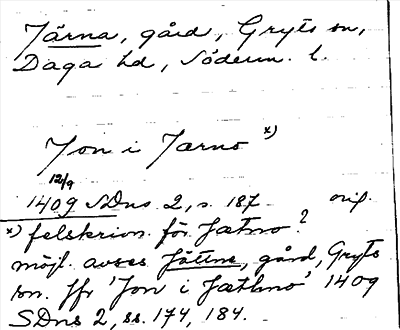 Järna, gård, Gryts sn,
Daga hd, Söderm. l.
Jon i Jærno x)
12/9
1409 SDns 2, s. 187 orig.
x) felskrivn. för Jætno?
möjl. avses Jättna, gård, Gryts
sn. Jfr 'Jon i Jæthno' 1409
SDns 2, ss. 174, 184.